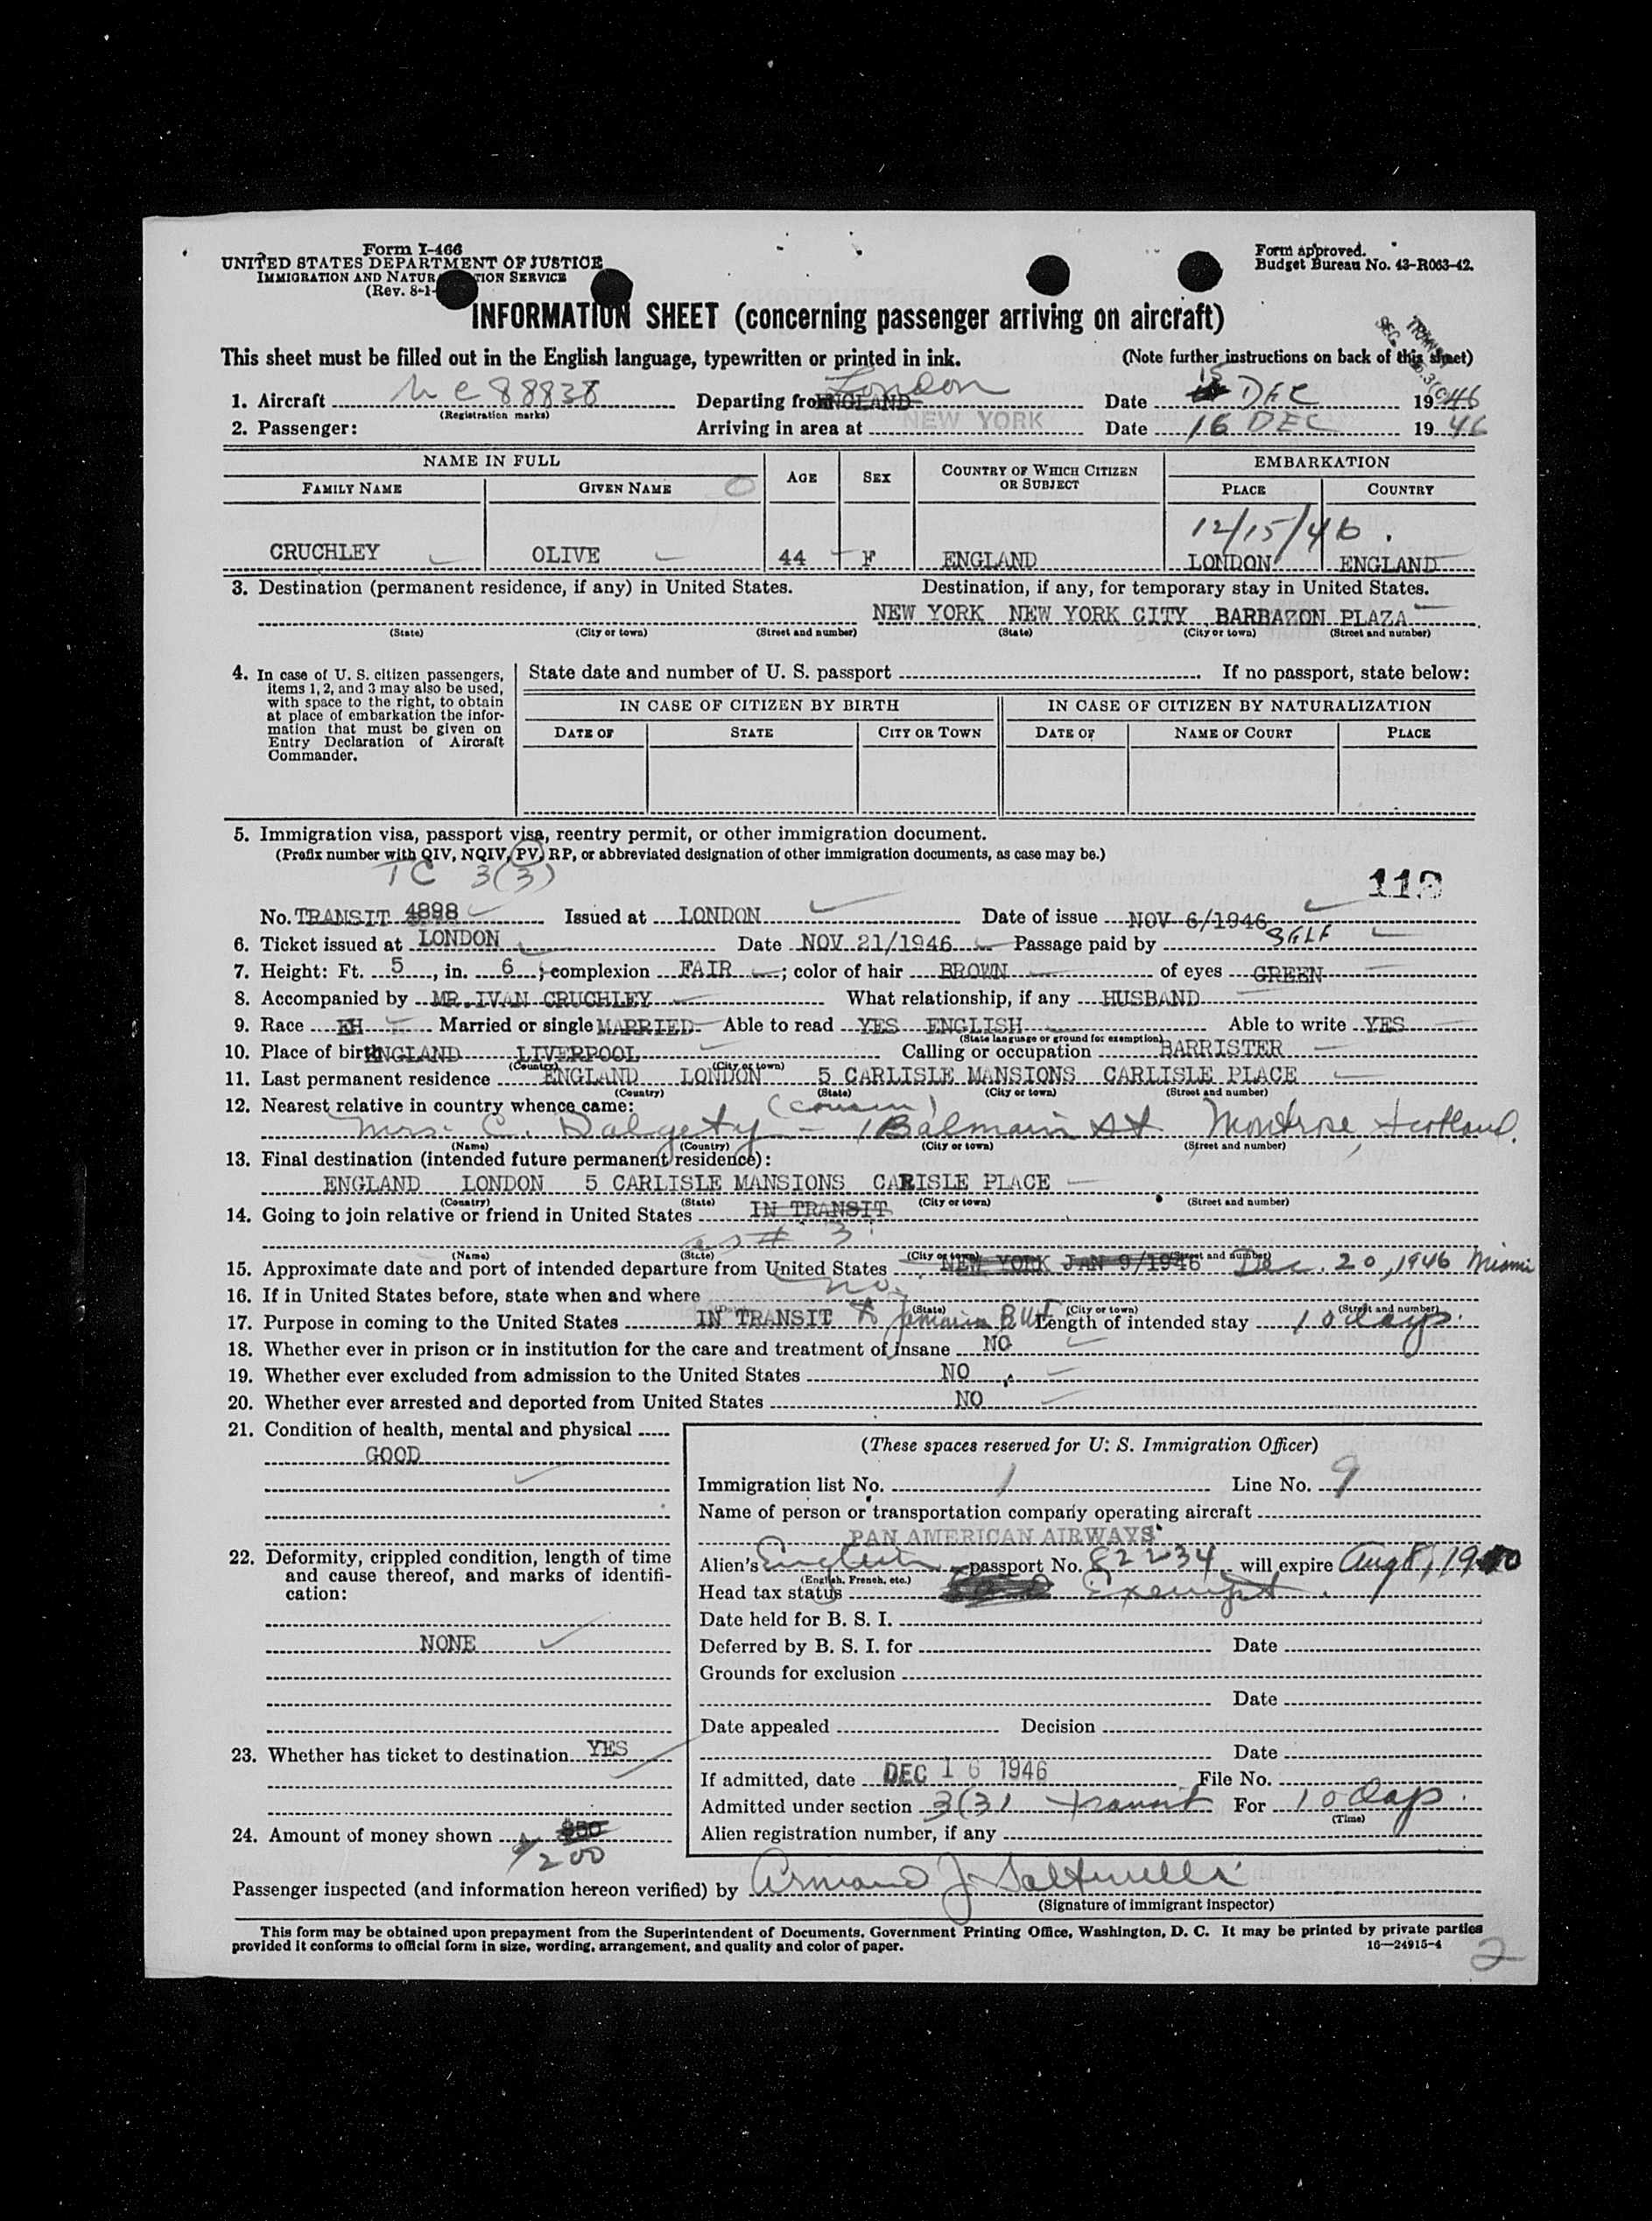 Form I-466
UNITED STATES DEPARTMENT OF JUSTICE
IMMIGRATION AND NATUR TION SERVICE
(Rev. 8-1-
Form approved.
Budget Bureau No. 43-R063-42.
INFORMATION SHEET (concerning passenger arriving on aircraft)
TRANSIT
SEC. 3(3)
This sheet must be filled out in the English language, typewritten or printed in ink. (Note further instructions on back of this sheet)
1. Aircraft NC 88838 Departing from ENGLAND London Date 15 DEC 1946
(Registration marks)
2. Passenger: Arriving in area at NEW YORK Date 16 DEC 1946
NAME IN FULL AGE SEX COUNTRY OF WHICH CITIZEN OR SUBJECT EMBARKATION
FAMILY NAME GIVEN NAME PLACE COUNTRY
12/15/46
CRUCHLEY OLIVE 44 F ENGLAND LONDON ENGLAND
3. Destination (permanent residence, if any) in United States. Destination, if any, for temporary stay in United States.
NEW YORK NEW YORK CITY BARBAZON PLAZA
(State) (City or town) (Street and number) (State) (City or town) (Street and number)
4. In case of U. S. citizen passengers, items 1, 2, and 3 may also be used, with space to the right, to obtain at place of embarkation the information that must be given on Entry Declaration of Aircraft Commander.
State date and number of U. S. passport If no passport, state below:
IN CASE OF CITIZEN BY BIRTH IN CASE OF CITIZEN BY NATURALIZATION
DATE OF STATE CITY OR TOWN DATE OF NAME OF COURT PLACE
5. Immigration visa, passport visa, reentry permit, or other immigration document.
(Prefix number with QIV, NQIV, PV, RP, or abbreviated designation of other immigration documents, as case may be.)
TC 3(3)
No. TRANSIT 4898 Issued at LONDON Date of issue NOV 6/1946
6. Ticket issued at LONDON Date NOV 21/1946 Passage paid by SELF
7. Height: Ft. 5, in. 6; complexion FAIR; color of hair BROWN of eyes GREEN
8. Accompanied by MR. IVAN CRUCHLEY What relationship, if any HUSBAND
9. Race EH Married or single MARRIED Able to read YES ENGLISH Able to write YES
(State language or ground for exemption)
10. Place of birth ENGLAND LIVERPOOL Calling or occupation BARRISTER
(Country) (City or town)
11. Last permanent residence ENGLAND LONDON 5 CARLISLE MANSIONS CARLISLE PLACE
(Country) (State) (City or town) (Street and number)
12. Nearest relative in country whence came: (cousin)
Mrs. C. Dalgety - 1 Balmain St Montrose, Scotland.
(Name) (Country) (City or town) (Street and number)
13. Final destination (intended future permanent residence):
ENGLAND LONDON 5 CARLISLE MANSIONS CARISLE PLACE
(Country) (State) (City or town) (Street and number)
14. Going to join relative or friend in United States IN TRANSIT
as # 3
(Name) (State) (City or town) (Street and number)
15. Approximate date and port of intended departure from United States NEW YORK JAN 9/1946 Dec. 20, 1946 Miami
16. If in United States before, state when and where no
(Date) (State) (City or town) (Street and number)
17. Purpose in coming to the United States IN TRANSIT to Jamaica BWI Length of intended stay 10 days.
18. Whether ever in prison or in institution for the care and treatment of insane NO
19. Whether ever excluded from admission to the United States NO
20. Whether ever arrested and deported from United States NO
21. Condition of health, mental and physical
GOOD
22. Deformity, crippled condition, length of time and cause thereof, and marks of identification:
NONE
23. Whether has ticket to destination YES
24. Amount of money shown $50
$200
(These spaces reserved for U. S. Immigration Officer)
Immigration list No. 1 Line No. 9
Name of person or transportation company operating aircraft
PAN AMERICAN AIRWAYS
Alien's English passport No. 82234 will expire Aug 8, 19
(English, French, etc.)
Head tax status Exempt.
Date held for B. S. I.
Deferred by B. S. I. for Date
Grounds for exclusion
Date
Date appealed Decision
Date
If admitted, date DEC 16 1946 File No.
Admitted under section 3(3) transit For 10 days.
(Time)
Alien registration number, if any
Passenger inspected (and information hereon verified) by Armand J.
(Signature of immigrant inspector)
This form may be obtained upon prepayment from the Superintendent of Documents, Government Printing Office, Washington, D. C. It may be printed by private parties
provided it conforms to official form in size, wording, arrangement, and quality and color of paper. 16—24915-4
2